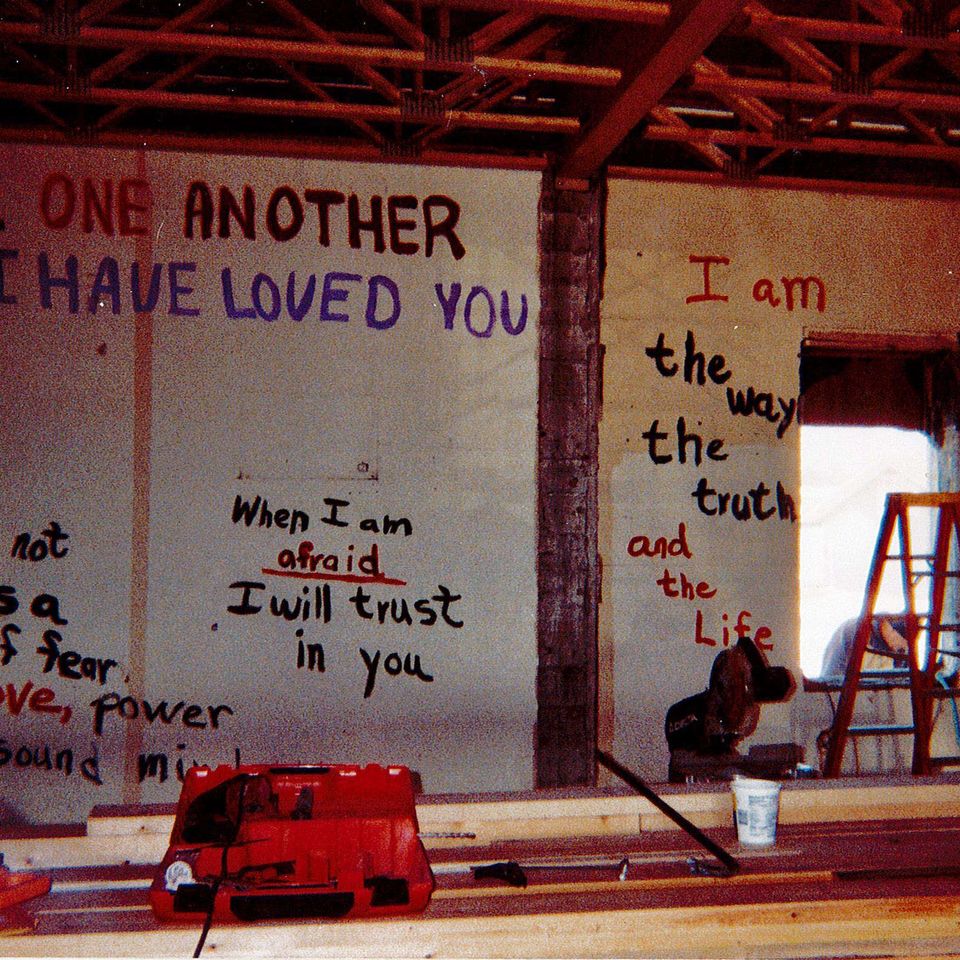 ONE ANOTHER
I HAVE LOVED YOU
not
s a
f fear
ove, power
sound mind
When I am
afraid
I will trust
in you
I am
the
way
the
truth
and
the
Life
DELTA